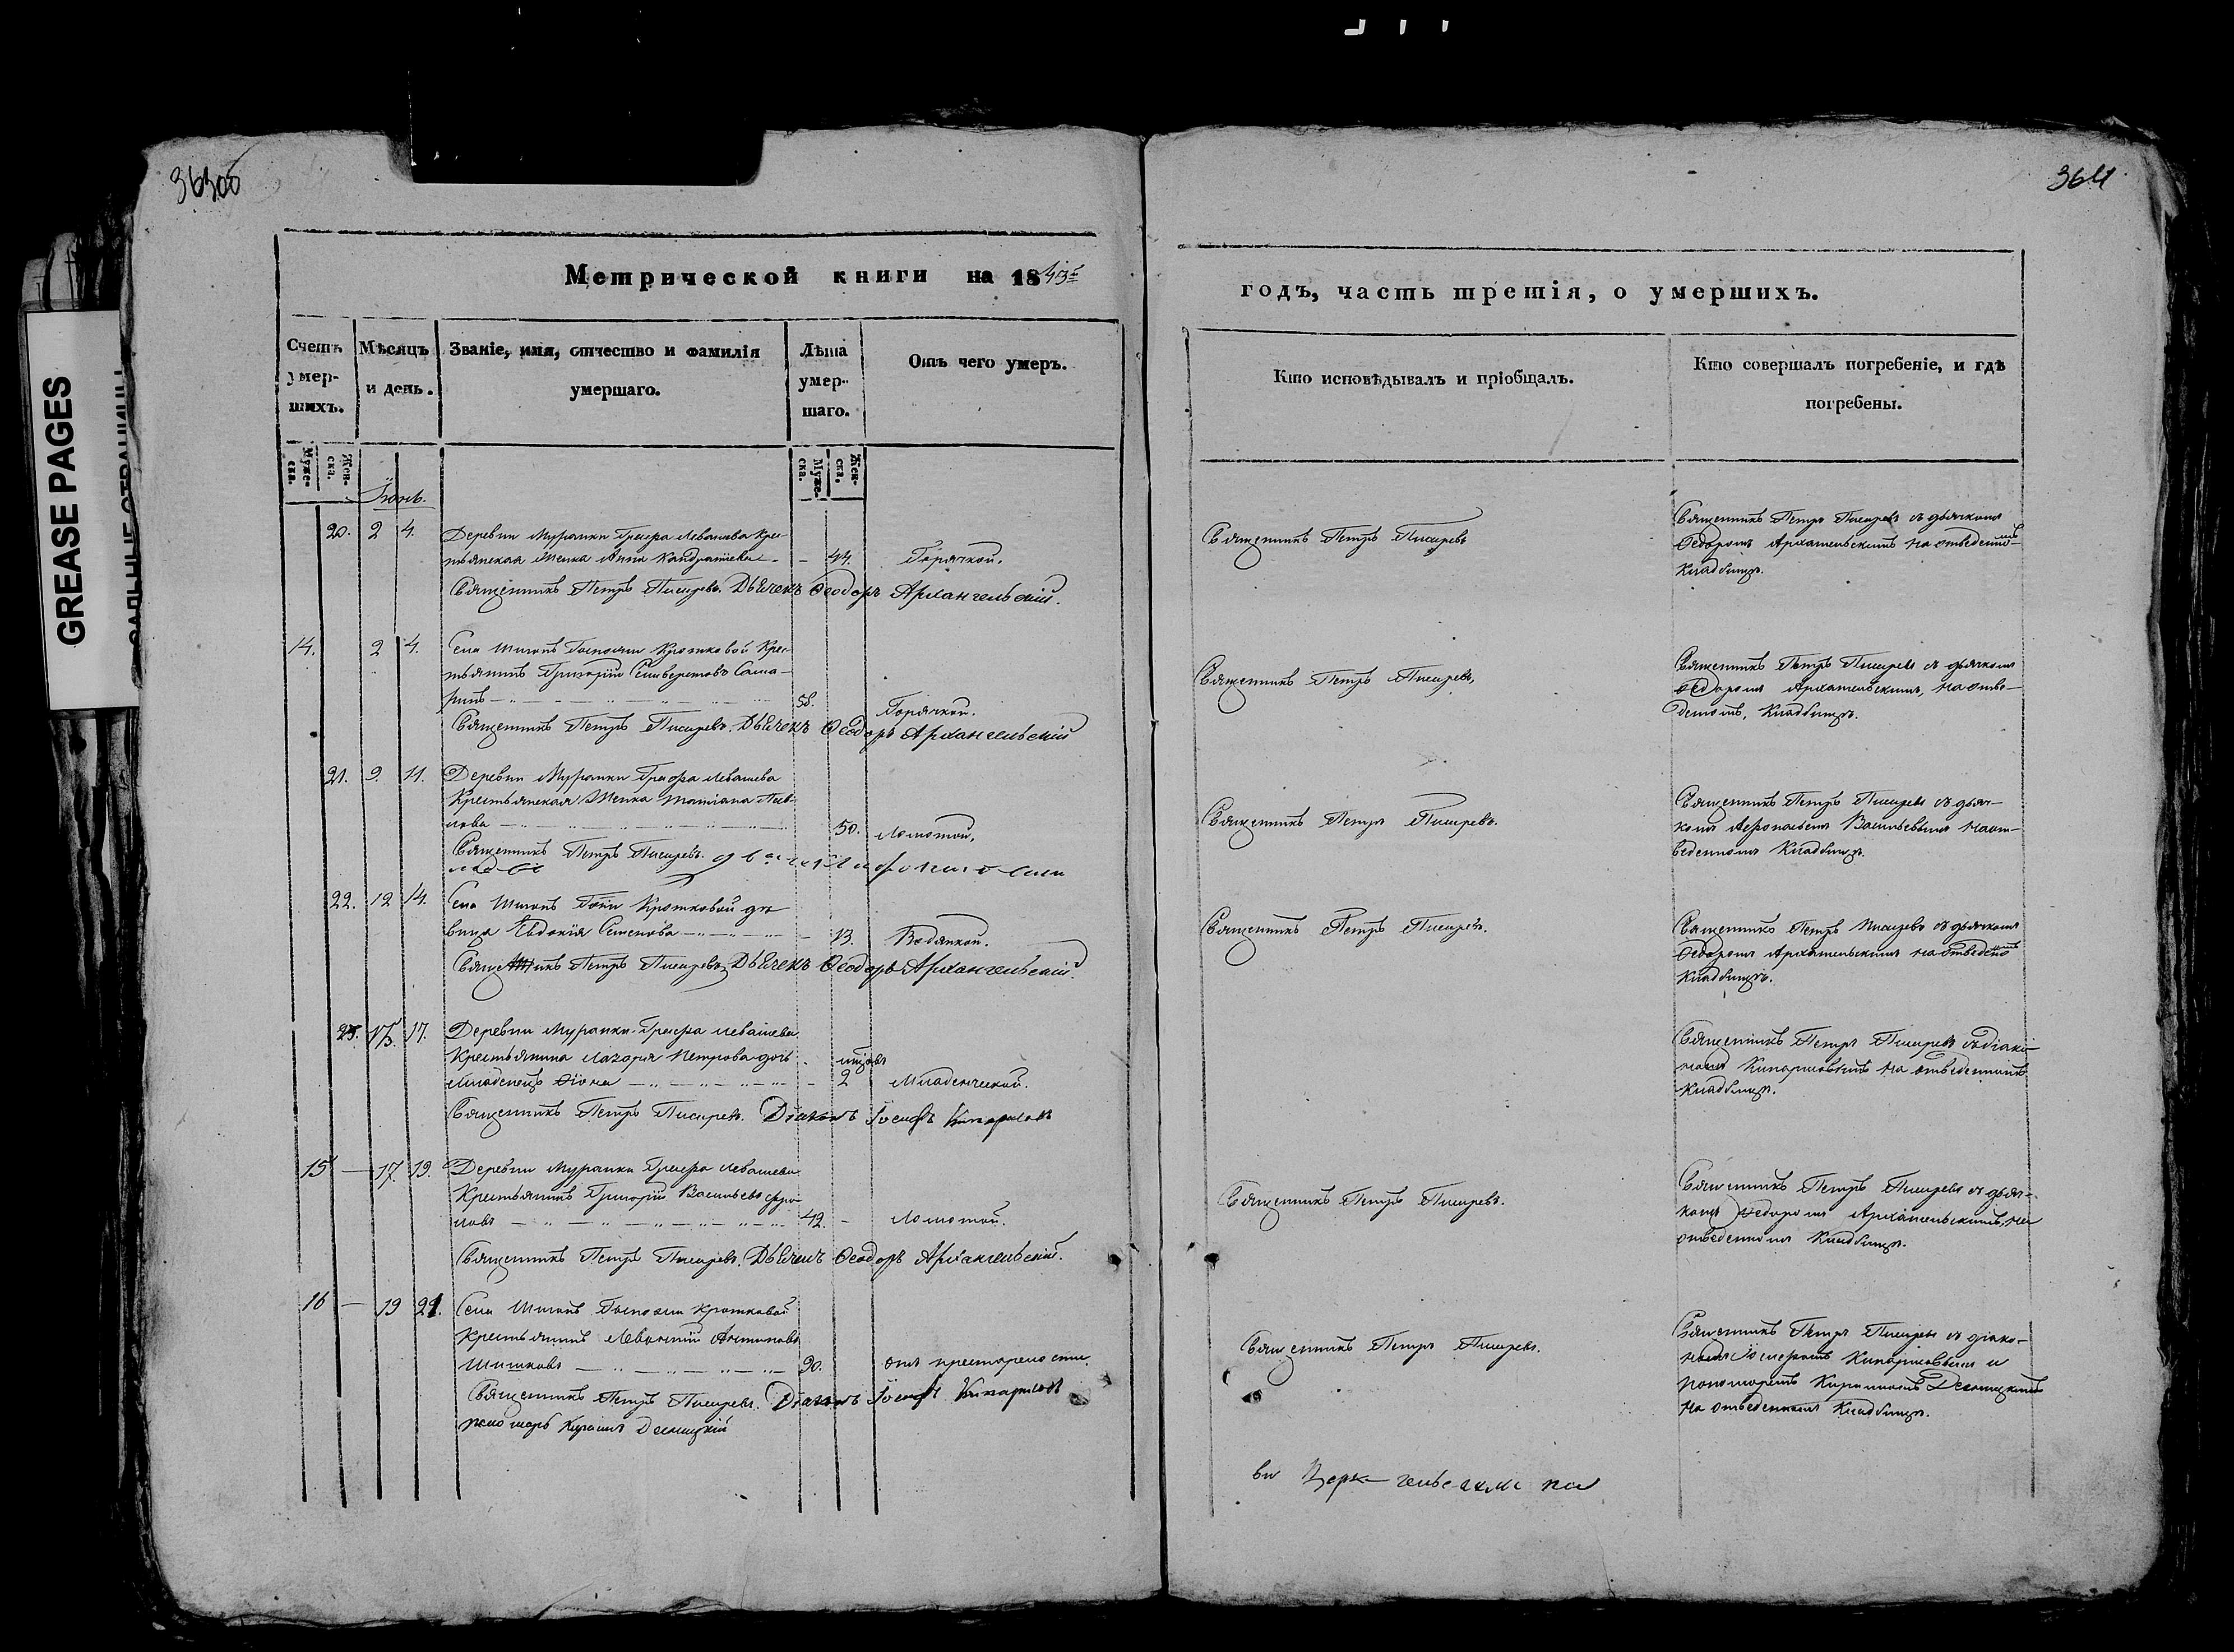 363об
364
GREASE PAGES
Метрической книги на 1843й
годъ, часть третія, о умершихъ.
Счетъ умершихъ.
Мѣсяцъ и день.
Званіе, имя, отчество и фамилія умершаго.
Лѣта умершаго.
Отъ чего умеръ.
Кто исповѣдывалъ и пріобщалъ.
Кто совершалъ погребеніе, и гдѣ погребены.
Мужеска.
Женска.
Мужеска.
Женска.
20. 2 4. Деревни Муранки Графа Левашева Кре-
стьянская Женка Анна Кандратьева - 44. Горячкой.
Священникъ Петръ Писаревъ. Дьячекъ Ѳеодоръ Архангельскій.
Священникъ Петръ Писаревъ
Священникъ Петръ Писаревъ съ дьячкомъ
Ѳедоромъ Архангельскимъ на отведенномъ
Кладбищѣ.
14. 2 4. Села Шигонъ Госпожи Кротковой Кре-
стьянинъ Григорій Селиверстовъ Сама-
ринъ 58. Горячкой.
Священникъ Петръ Писаревъ. Дьячекъ Ѳеодоръ Архангельскій
Священникъ Петръ Писаревъ,
Священникъ Петръ Писаревъ съ дьячкомъ
Ѳедоромъ Архангельскимъ, на отве-
деномъ, Кладбищѣ.
21. 9. 11. Деревни Муранки Графа Левашева
Крестьянская Женка Татіана Пав-
лова 50. Ломотой.
Священникъ Петръ Писаревъ.
Священникъ Петръ Писаревъ.
Священникъ Петръ Писаревъ съ дьяч-
комъ Васильевымъ на от-
веденномъ Кладбищѣ.
22. 12 14. Села Шигонъ Гжи Кротковой дѣ-
вица Евдокія Семенова - 13. Водянкой.
Священникъ Петръ Писаревъ Дьячекъ Ѳеодоръ Архангельскій.
Священникъ Петръ Писаревъ.
Священникъ Петръ Писаревъ съ дьячкомъ
Ѳедоромъ Архангельскимъ на отведеномъ
Кладбищѣ.
23. 15. 17. Деревни Муранки Графа Левашева
Крестьянина Лазаря Петрова дочь
младенецъ - 2 Младенческой.
Священникъ Петръ Писаревъ. Діаконъ Іосифъ Кипарисовъ
Священникъ Петръ Писаревъ съ діако-
номъ Кипарисовымъ на отведенномъ
Кладбищѣ.
15 — 17. 19. Деревни Муранки Графа Левашева
Крестьянинъ Григорій Васильевъ Фро-
ловъ 42. - Ломотой.
Священникъ Петръ Писаревъ. Дьячекъ Ѳеодоръ Архангельскій.
Священникъ Петръ Писаревъ.
Священникъ Петръ Писаревъ съ дьяч-
комъ Ѳедоромъ Архангельскимъ, на
отведенномъ Кладбищѣ.
16 — 19 21. Села Шигонъ Госпожи Кротковой
Крестьянинъ Левонтій Антиповъ
Шишковъ 90. отъ престарелости.
Священникъ Петръ Писаревъ. Діаконъ Іосифъ Кипарисовъ
пономарь Десницкій
Священникъ Петръ Писаревъ.
Священникъ Петръ Писаревъ съ діако-
номъ Іосифомъ Кипарисовымъ и
пономаремъ Десницкимъ
на отведенномъ Кладбищѣ.